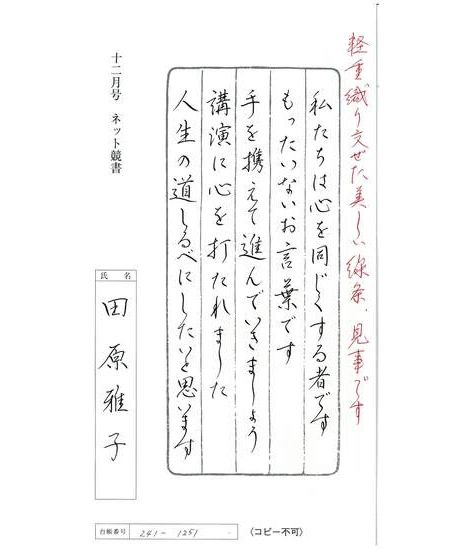 軽重織り交ぜた美しい線条、見事です
私たちは心を同じくする者です
もったいないお言葉です
手を携えて進んでいきましょう
講演に心を打たれました
人生の道しるべにしたいと思います
十二月号 ネット競書
氏名
田原雅子
台帳番号 241-1251
(コピー不可)